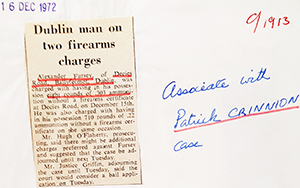 16 DEC 1972
C/1913
Dublin man on
two firearms
charges
Alexander Fursey, of Decies
Road, Ballyfermot, Dublin, was
charged with having in his pos-
session eight rounds of .303 ammuni-
tion without a firearms certificate
at Decies Road, on December 15th.
He was also charged with having
in his possession 710 rounds of .22
ammunition without a firearms cer-
tificate on the same occasion.
Mr. Hugh O'Flaherty, prosecu-
ting, said there might be additional
charges preferred against Fursey
and suggested that the case be ad-
journed until next Tuesday.
Mr. Justice Griffin, adjourning
the case until Tuesday, said the
court would consider a bail appli-
cation on Tuesday.
Associate with
Patrick CRINNION
case